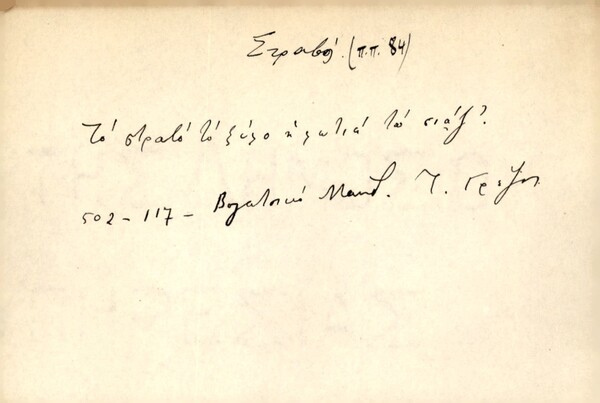 Στραβό (π.π. 84)
Τό στραβό τό ξύλο ἡ φωτιά τό σιάζ'.
502 - 117 - Βογατσικό Μακεδ. Τ. Γρίζου